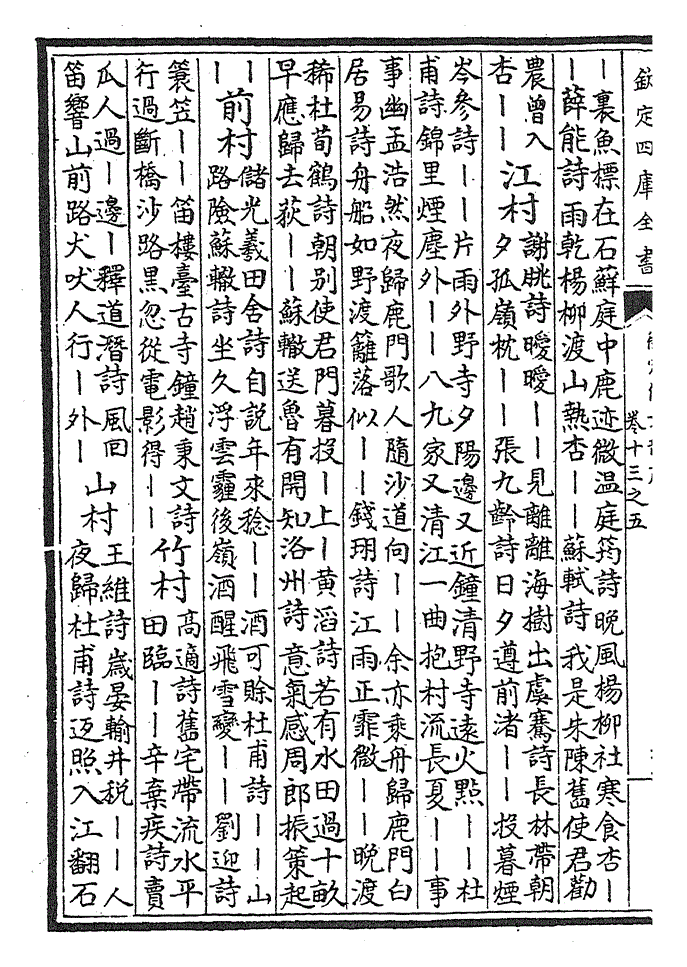 欽定四庫全書
卷十三之五
丨裏魚標在石蘚庭中鹿迹微温庭筠詩晚風楊柳社寒食杏丨
丨薛能詩雨乾楊柳渡山熱杏丨丨蘇軾詩我是朱陳舊使君勸
農曾入
杏丨丨
江村
謝朓詩曖曖丨丨見離離海樹出虞騫詩長林帶朝
夕孤嶺枕丨丨張九齡詩日夕遵前渚丨丨投暮煙
岑參詩丨丨片雨外野寺夕陽邊又近鐘清野寺遠火點丨丨杜
甫詩錦里煙塵外丨丨八九家又清江一曲抱村流長夏丨丨事
事幽孟浩然夜歸鹿門歌人隨沙道向丨丨余亦乘舟歸鹿門白
居易詩舟船如野渡籬落似丨丨錢珝詩江雨正霏微丨丨晚渡
稀杜荀鶴詩朝别使君門暮投丨上丨黃滔詩若有水田過十畝
早應歸去荻丨丨蘇轍送魯有開知洛州詩意氣感周郎振策起
丨
丨
前村
儲光羲田舍詩自説年來稔丨丨酒可賒杜甫詩丨丨山
路險蘇轍詩坐久浮雲霾後嶺酒醒飛雪變丨丨劉迎詩
簑笠丨丨笛樓臺古寺鐘趙秉文詩
行過斷橋沙路黑忽從電影得丨丨
竹村
高適詩舊宅帶流水平
田臨丨丨辛棄疾詩賣
瓜人過丨邊丨釋道潛詩風回
笛響山前路犬吠人行丨外丨
山村
王維詩歲晏輸井税丨丨人
夜歸杜甫詩返照入江翻石